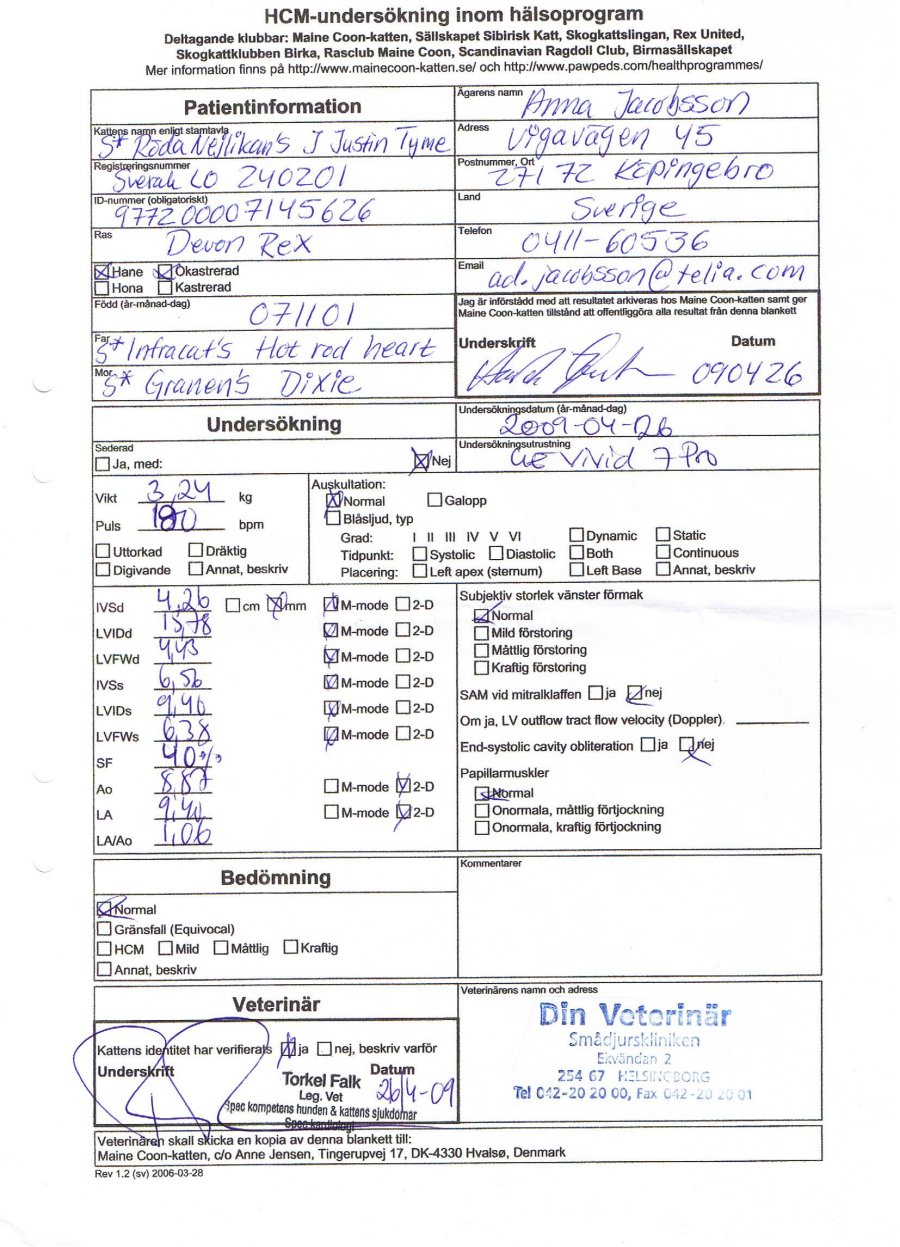 HCM-undersökning inom hälsoprogram
Deltagande klubbar: Maine Coon-katten, Sällskapet Sibirisk Katt, Skogkattslingan, Rex United,
Skogkattklubben Birka, Rasclub Maine Coon, Scandinavian Ragdoll Club, Birmasällskapet
Mer information finns på http://www.mainecoon-katten.se/ och http://www.pawpeds.com/healthprogrammes/
Patientinformation
Kattens namn enligt stamtavla
S* Röda Nejlikan's J Justin Tyme
Registreringsnummer
Sverak LO 240201
ID-nummer (obligatoriskt)
977200007145626
Ras
Devon Rex
Hane Okastrerad
Hona Kastrerad
Född (år-månad-dag)
071101
Far
S* Infracat's Hot rod heart
Mor
S* Granen's Dixie
Ägarens namn
Anna Jacobsson
Adress
Vigavägen 45
Postnummer, Ort
27172 Köpingebro
Land
Sverige
Telefon
0411-60536
Email
ad.jacobsson@telia.com
Jag är införstådd med att resultatet arkiveras hos Maine Coon-katten samt ger
Maine Coon-katten tillstånd att offentliggöra alla resultat från denna blankett
Underskrift Datum
090426
Undersökning
Sederad
Ja, med: Nej
Undersökningsdatum (år-månad-dag)
2009-04-26
Undersökningsutrustning
GE Vivid 7 Pro
Vikt 3,24 kg
Puls 180 bpm
Uttorkad Dräktig
Digivande Annat, beskriv
Auskultation:
Normal Galopp
Blåsljud, typ
Grad: I II III IV V VI Dynamic Static
Tidpunkt: Systolic Diastolic Both Continuous
Placering: Left apex (sternum) Left Base Annat, beskriv
IVSd 4,26 cm mm M-mode 2-D
LVIDd 15,78 M-mode 2-D
LVFWd 4,43 M-mode 2-D
IVSs 6,56 M-mode 2-D
LVIDs 9,40 M-mode 2-D
LVFWs 6,38 M-mode 2-D
SF 40%
Ao 8,87 M-mode 2-D
LA 9,40 M-mode 2-D
LA/Ao 1,06
Subjektiv storlek vänster förmak
Normal
Mild förstoring
Måttlig förstoring
Kraftig förstoring
SAM vid mitralklaffen ja nej
Om ja, LV outflow tract flow velocity (Doppler).
End-systolic cavity obliteration ja nej
Papillarmuskler
Normal
Onormala, måttlig förtjockning
Onormala, kraftig förtjockning
Bedömning
Normal
Gränsfall (Equivocal)
HCM Mild Måttlig Kraftig
Annat, beskriv
Kommentarer
Veterinär
Kattens identitet har verifierats ja nej, beskriv varför
Underskrift Datum
Torkel Falk
Leg. Vet
26/4-09
Spec kompetens hunden & kattens sjukdomar
Spec kardiologi
Veterinärens namn och adress
Din Veterinär
Smådjurskliniken
Ekvändan 2
254 67 HELSINGBORG
Tel 042-20 20 00, Fax 042-20 20 01
Veterinären skall skicka en kopia av denna blankett till:
Maine Coon-katten, c/o Anne Jensen, Tingerupvej 17, DK-4330 Hvalsø, Denmark
Rev 1.2 (sv) 2006-03-28